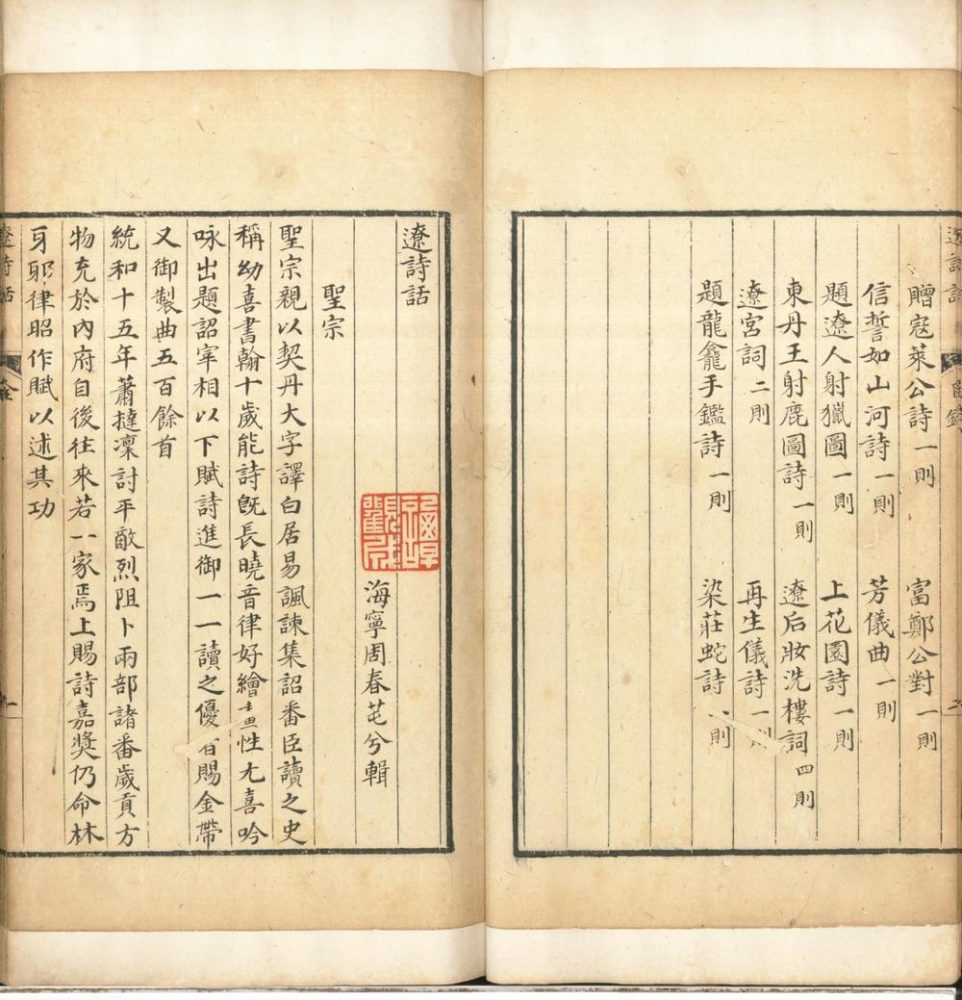 遼詩話
贈寇萊公詩一則 富鄭公對一則
信誓如山河詩一則 芳儀曲一則
題遼人射獵圖一則 上花園詩一則
東丹王射鹿圖詩一則 遼后妝洗樓詞四則
遼宮詞二則 再生儀詩一則
題龍龕手鑑詩一則 染莊蛇詩一則
遼詩話
海寧周春芚兮輯
聖宗
聖宗親以契丹大字譯白居易諷諫集詔番臣讀之史
稱幼喜書翰十歲能詩旣長曉音律好繪畫性尤喜吟
咏出題詔宰相以下賦詩進御一一讀之優者賜金帶
又御製曲五百餘首
統和十五年蕭撻凜討平敵烈阻卜兩部諸番歲貢方
物充於內府自後往來若一家焉上賜詩嘉獎仍命林
牙耶律昭作賦以述其功
遼詩話